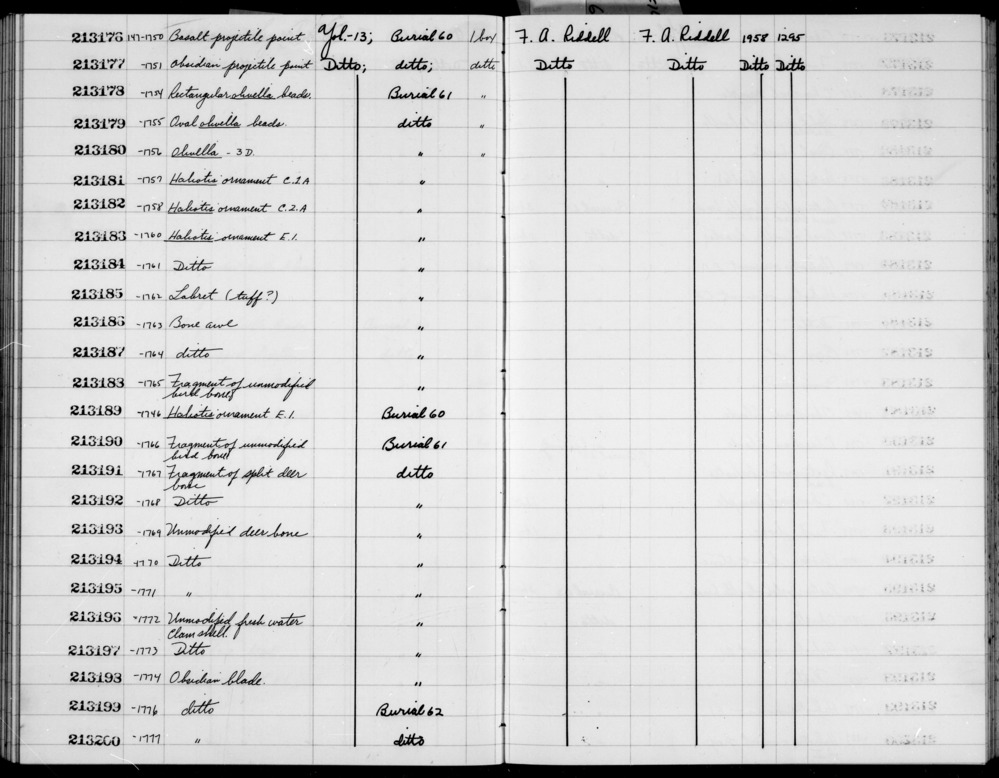 213176 147-1750 Basalt projectile point Yol.-13; Burial 60 1 box F. A. Riddell F. A. Riddell 1958 1295
213177 -1751 Obsidian projectile point Ditto; ditto; ditto Ditto Ditto Ditto Ditto
213178 -1754 Rectangular olivella beads. Burial 61 "
213179 -1755 Oval olivella beads. ditto "
213180 -1756 Olivella - 3D. " "
213181 -1757 Haliotis ornament C.2A "
213182 -1758 Haliotis ornament C.2.A "
213183 -1760 Haliotis ornament E.1. "
213184 -1761 Ditto "
213185 -1762 Labret (tuff?) "
213186 -1763 Bone awl "
213187 -1764 ditto "
213188 -1765 Fragment of unmodified "
bird bones
213189 -1746 Haliotis ornament E.1. Burial 60
213190 -1766 Fragment of unmodified Burial 61
bird bones
213191 -1767 Fragment of split deer ditto
bone
213192 -1768 Ditto "
213193 -1769 Unmodified deer bone "
213194 -1770 Ditto "
213195 -1771 " "
213196 -1772 Unmodified fresh water "
clam shell.
213197 -1773 Ditto "
213198 -1774 Obsidian blade. "
213199 -1776 ditto Burial 62
213200 -1777 " ditto